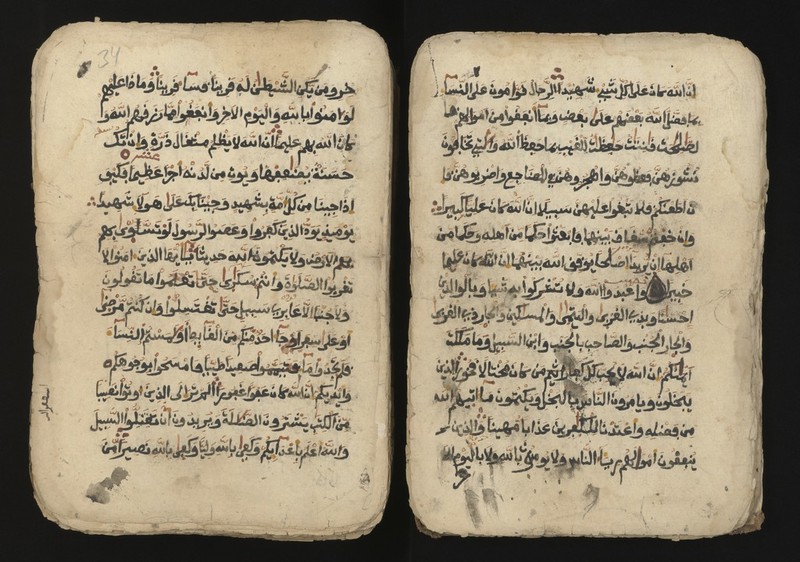 ان الله كان على كل شيء شهيدا الرجال قوامون على النساء
بما فضل الله بعضهم على بعض وبما انفقوا من اموالهم فا
لصلحت قنتت حفظت للغيب بما حفظ الله والتي تخافون
نشوزهن فعظوهن واهجروهن في المضاجع واضربوهن فا
ن اطعنكم فلا تبغوا عليهن سبيلا ان الله كان عليا كبيرا
وان خفتم شقاق بينهما فابعثوا حكما من اهله وحكما من
اهلها ان يريدا اصلحا يوفق الله بينهما ان الله كان عليما
خبيرا واعبدوا الله ولا تشركوا به شيا وبالوالدين
احسنا وبذي القربى واليتمى والمسكين والجار ذي القربى
والجار الجنب والصاحب بالجنب وابن السبيل وما ملكت
ايمنكم ان الله لا يحب من كان مختالا فخورا الذين
يبخلون ويامرون الناس بالبخل ويكتمون ما اتيهم الله
من فضله واعتدنا للكفرين عذابا مهينا والذين
ينفقون اموالهم رياء الناس ولا يومنون بالله ولا باليوم الا
خر
34
خر ومن يكن الشيطن له قرينا فساء قرينا وماذا عليهم
لو امنوا بالله واليوم الاخر وانفقوا مما رزقهم الله و
كان الله بهم عليما ان الله لا يظلم مثقال ذرة وان تك
حسنة يضعفها ويوت من لدنه اجرا عظيما فكيف
اذا جينا من كل امة بشهيد وجينا بك على هولاء شهيدا
يوميذ يود الذين كفروا وعصوا الرسول لو تسوى بهم
الارض ولا يكتمون الله حديثا يايها الذين امنوا لا
تقربوا الصلوة وانتم سكرى حتى تعلموا ما تقولون
ولا جنبا الا عابري سبيل حتى تغتسلوا وان كنتم مرضى
او على سفر او جا احد منكم من الغايط او لمستم النساء
فلم تجدوا ماء فتيمموا صعيدا طيبا فامسحوا بوجوهكم
وايديكم ان الله كان عفوا غفورا الم تر الى الذين اوتوا نصيبا
من الكتب يشترون الضللة ويريدون ان تضلوا السبيل
والله اعلم باعدايكم وكفى بالله وليا وكفى بالله نصيرا من